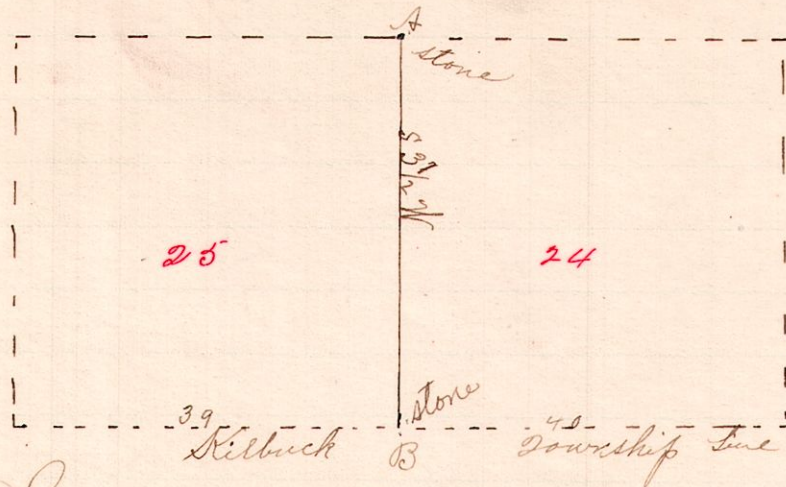 A
stone
S 3 1/2 W
25 24
stone
39 40
Kilbuck B Township Line